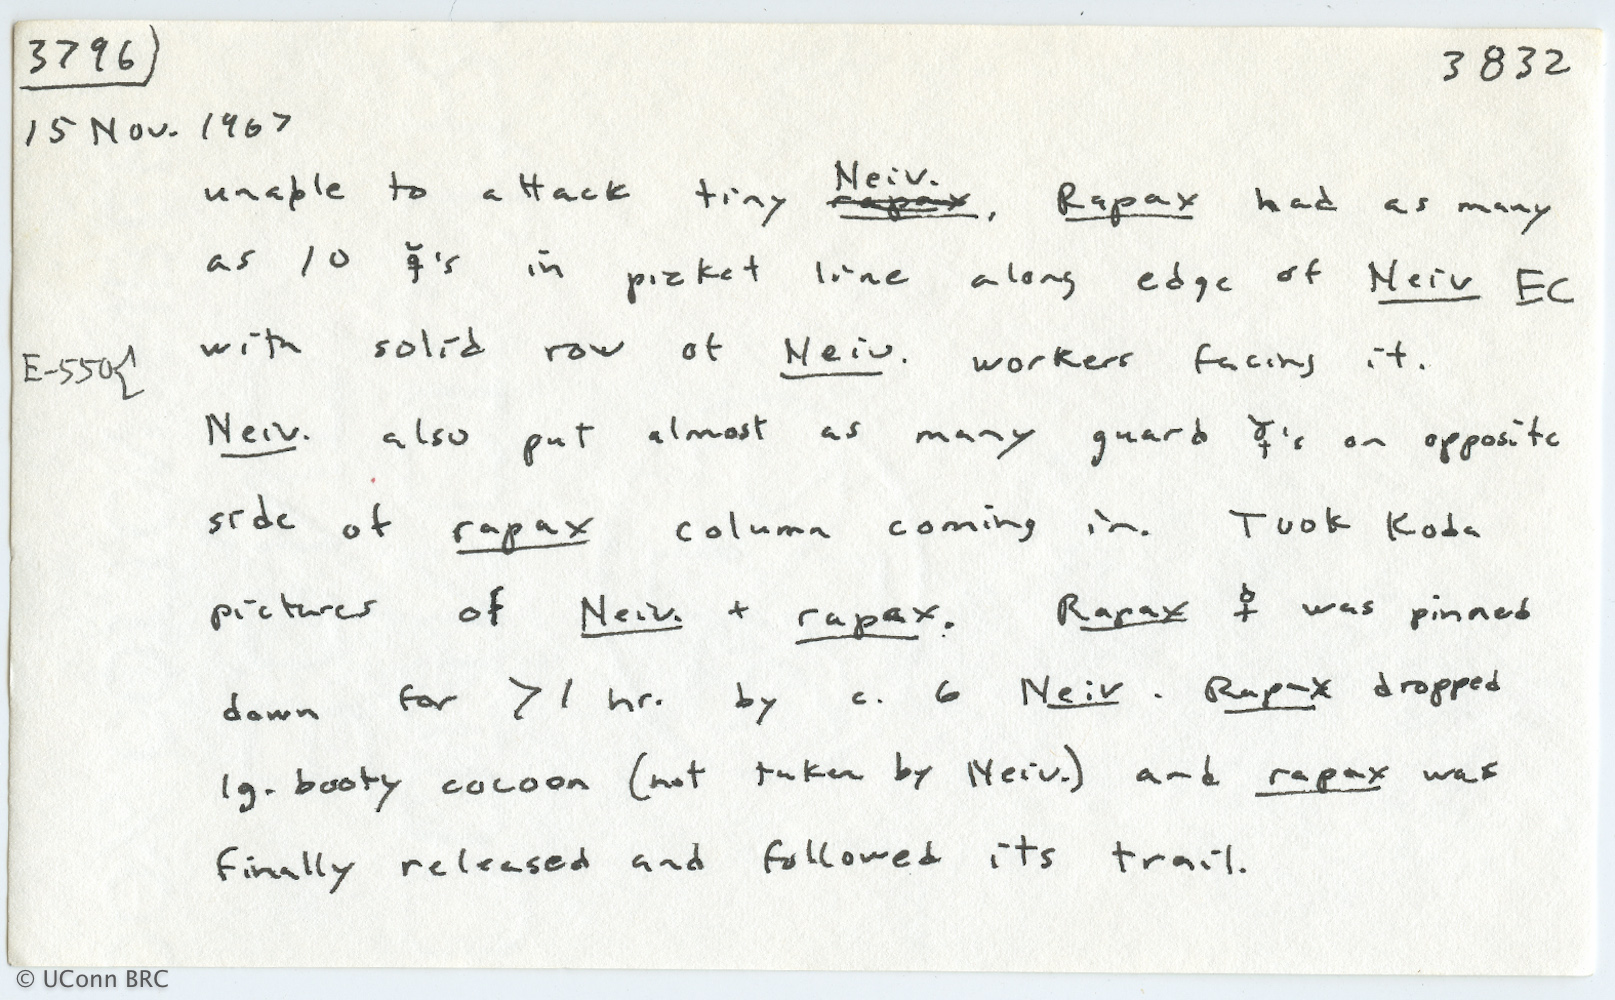 3796) 3832
15 Nov. 1967
unable to attack tiny Neiv. rapax, Rapax had as many
as 10 ☿'s in picket line along edge of Neiv EC
with solid row of Neiv. workers facing it.
E-550{
Neiv. also put almost as many guard ☿'s on opposite
side of rapax column coming in. Took Koda
pictures of Neiv. + rapax. Rapax ☿ was pinned
down for >1 hr. by c. 6 Neiv. Rapax dropped
lg. booty cocoon (not taken by Neiv.) and rapax was
finally released and followed its trail.
© UConn BRC